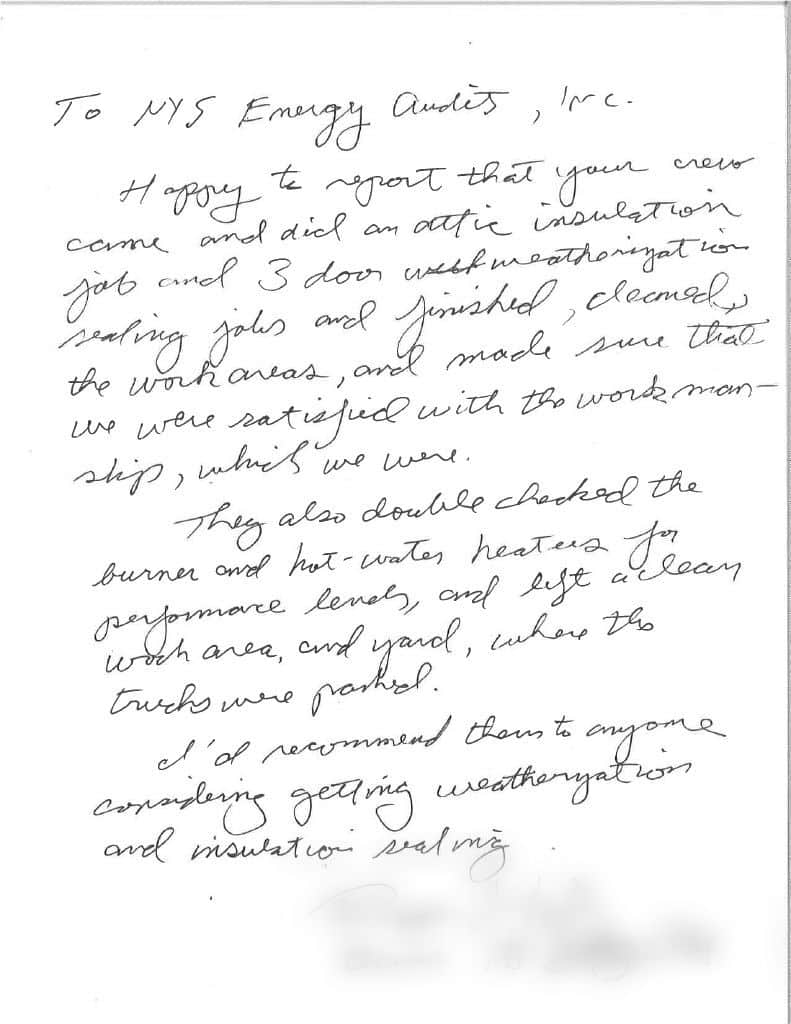 To NYS Energy Audits, Inc.
Happy to report that your crew
came and did an attic insulation
job and 3 door weatherization
sealing jobs and finished, cleaned,
the work areas, and made sure that
we were satisfied with the workman-
ship, which we were.
They also double checked the
burner and hot-water heaters for
performance levels, and left a clean
work area, and yard, where the
trucks were parked.
I'd recommend them to anyone
considering getting weatheryzation
and insulation sealing.